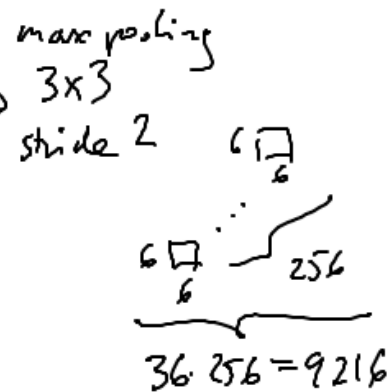 max pooling
3x3
stride 2
6
6
...
6
6
256
36·256=9216